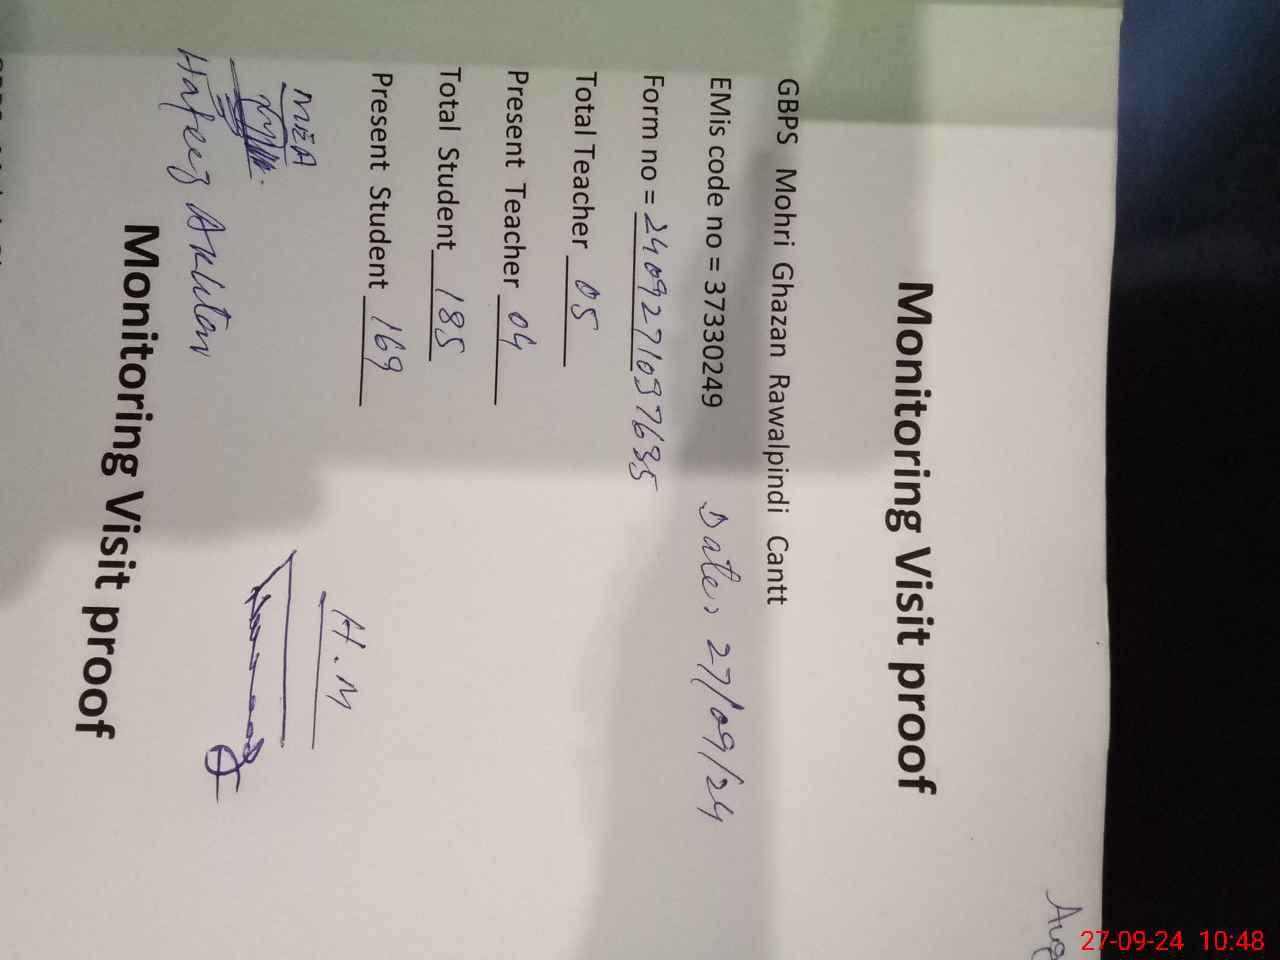 Aug
Monitoring Visit proof
GBPS Mohri Ghazan Rawalpindi Cantt
EMis code no = 37330249 Date: 27/09/24
Form no = 2409271097635
Total Teacher 05
Present Teacher 04
Total Student 185
Present Student 169
MEA H.M
Hafeez Akhtar
Monitoring Visit proof
27-09-24 10:48